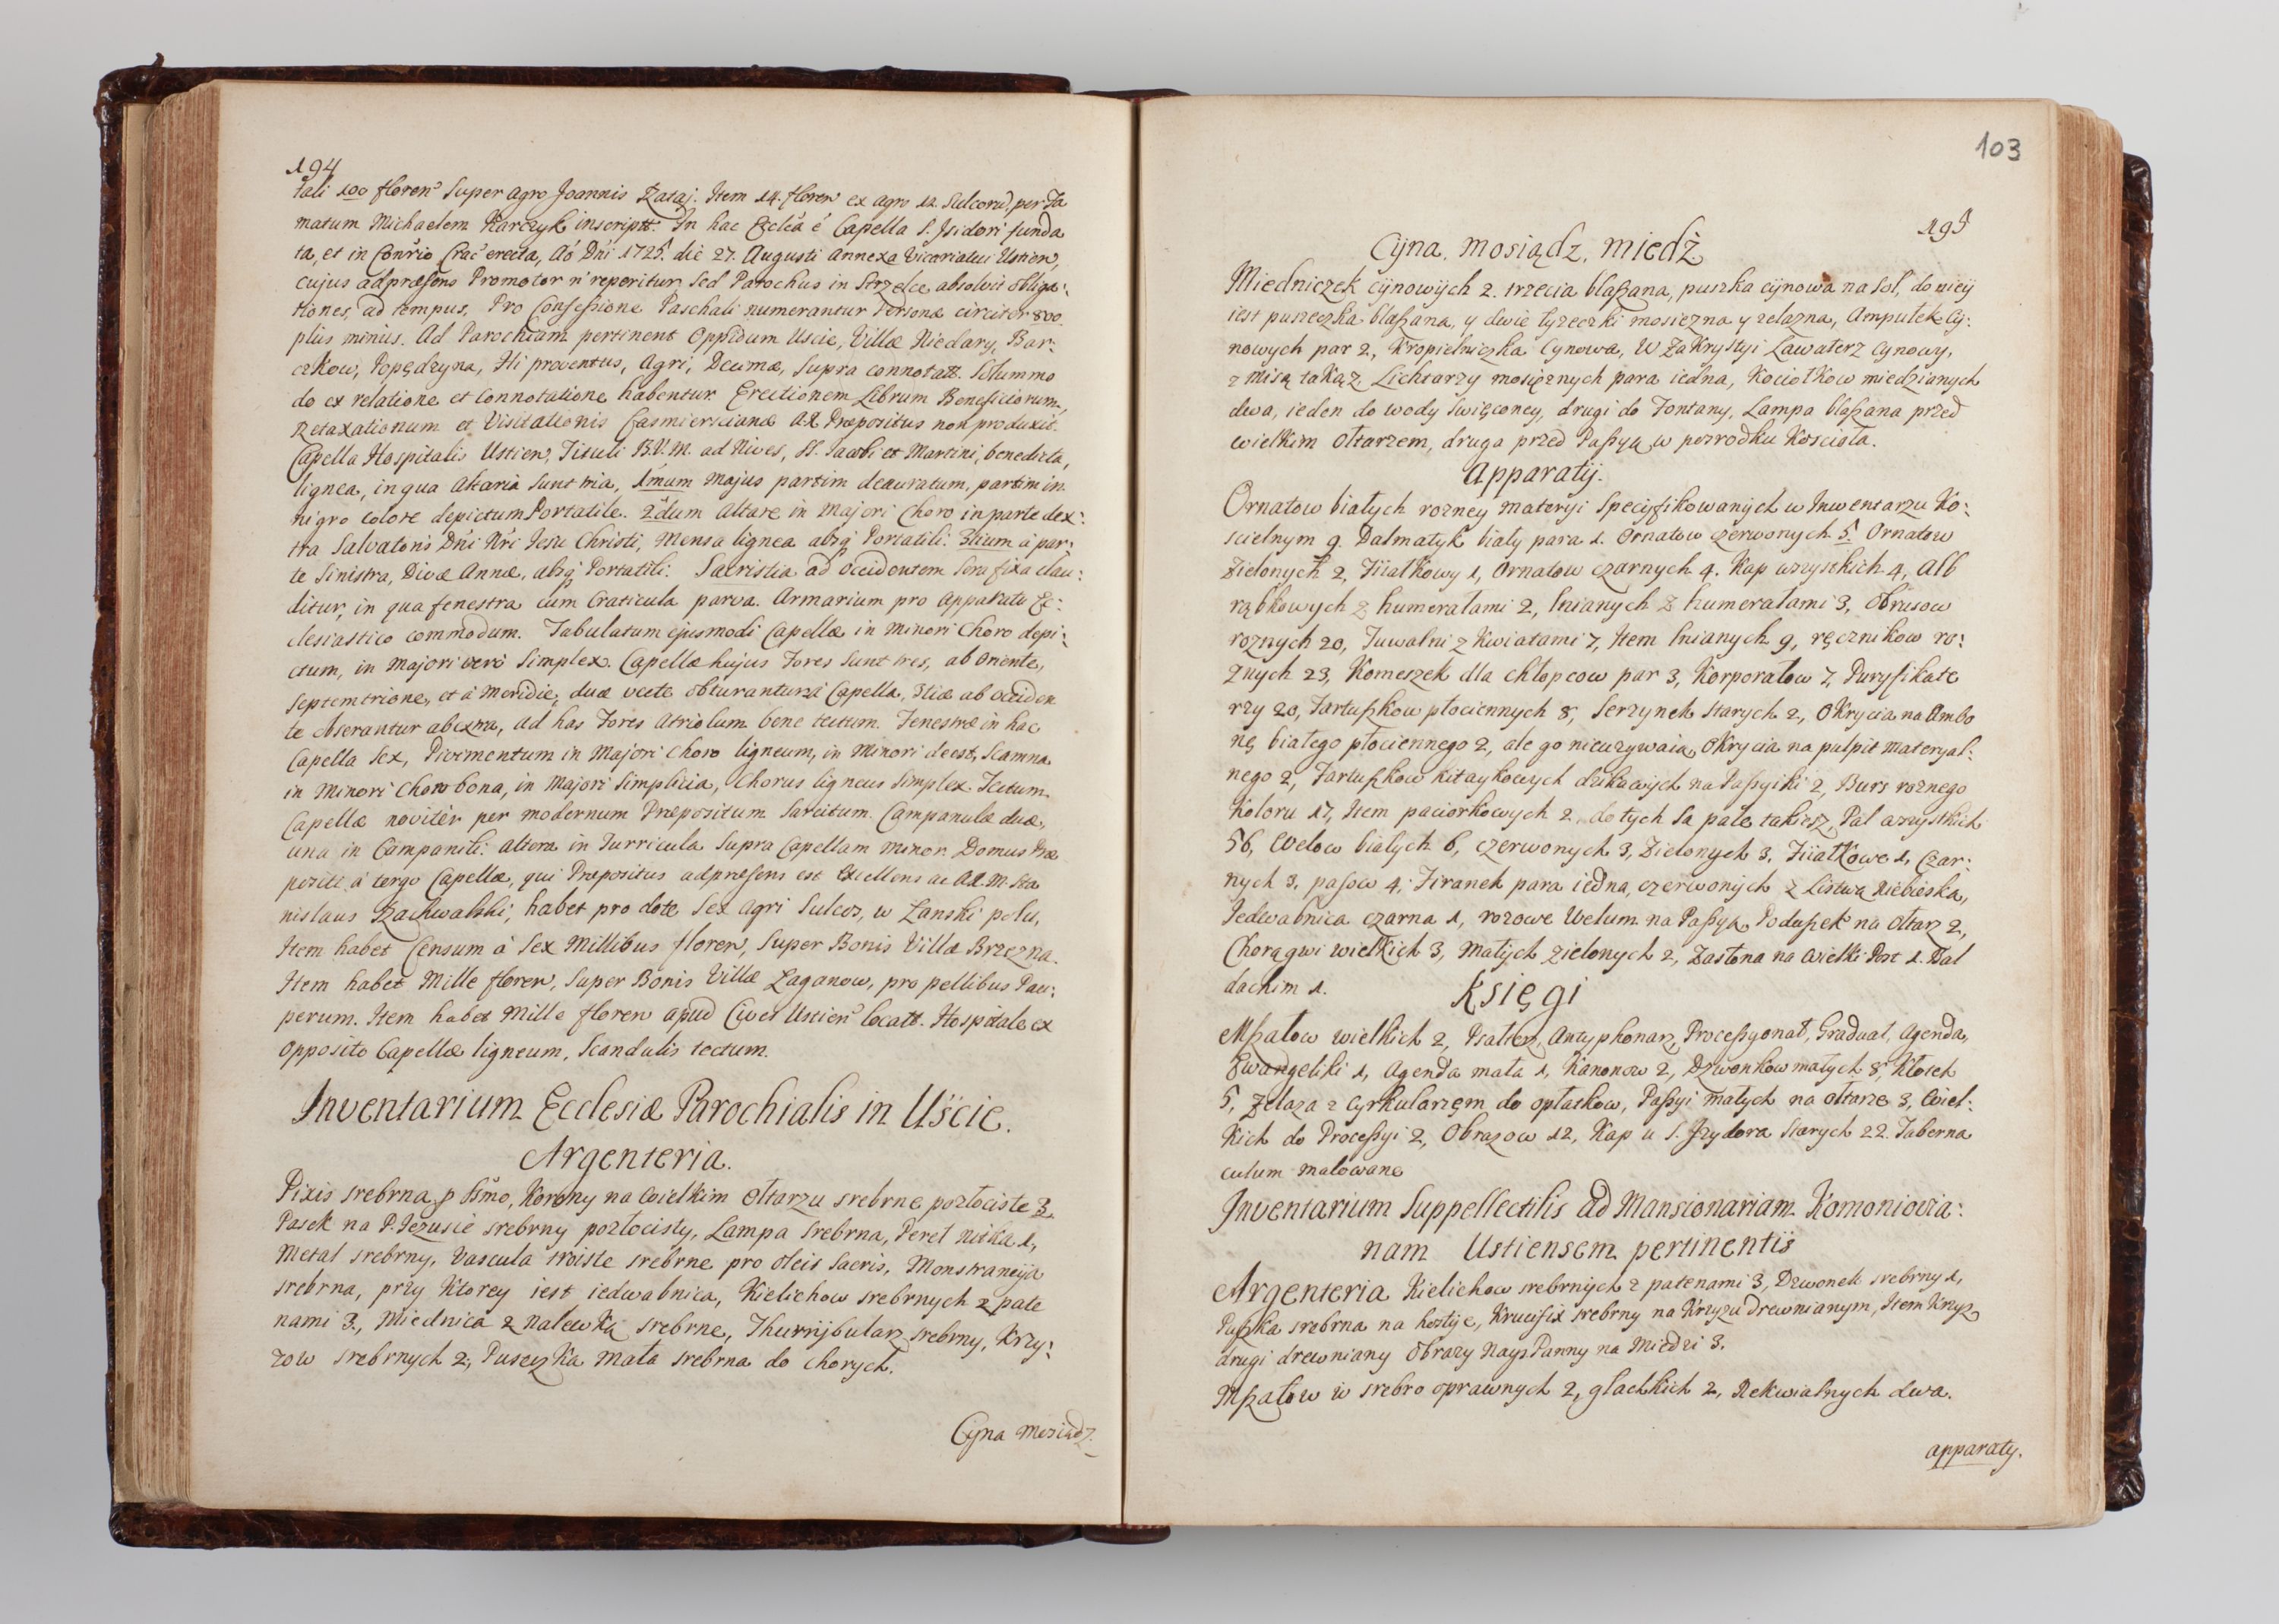 194
tali 100 floren Super agro Joannis Rataj. Item 14. floren ex agro 12. Sulcorū, per Fa
matum Michaelem Karczyk inscriptt. In hac Ecclia é Capella S. Isidori funda
ta, et in Conrio Crac erecta, Aō Dni 1725. die 27. Augusti Annexa Vicariatui Ustien,
cujus adpræsens Promotor n reperitur, Sed Parochus in Strzelce absolvit obliga:
tiones, ad tempus. Pro Confeßione Paschali numerantur Personæ circiter 800.
plus minus. Ad Parochiam pertinent Oppidum Uscie, Villæ Niedary, Bar:
czkow, Popędzyna, Hi proventus, Agri, Decimæ, Supra connotatt. Solummo
do ex relatione et connotatione habentur. Erectionem Librum Beneficiorum,
Retaxationum et Visitationis Casmiersciana AR Præpositus non produxit.
Capella Hospitalis Ustien, Tituli B.V.M. ad Nives, SS. Jacobi et Martini, benedicta,
lignea, in qua Altaria Sunt tria, 1mum Majus partim deauratum, partim in
nigro colore depictum Portatile. 2dum Altare in Majori Choro in parte dex:
tra Salvatoris Dni Nri Jesu Christi, Mensa lignea absq Portatili. 3tium à par:
te Sinistra, Divæ Annæ, absq Portatili. Sacristia ad Occidentem Sera fixa clau:
ditur, in qua fenestra cum Craticula parva. Armarium pro Apparatu Ec:
clesiastico commodum. Tabulatum ejusmodi Capellæ in Minori Choro depi:
ctum, in Majori verò Simplex. Capellæ hujus Fores Sunt tres, ab Oriente,
Septemtrione, et à Meridie, duæ vecte obturantur à Capella, 3tiæ ab occiden
te obserantur ab extra, ad has Fores Atriolum bene tectum. Fenestræ in hac
Capella Sex, Pavimentum in Majori Choro ligneum, in Minori deest, Scamna
in Minori Choro bona, in Majori Simplicia, Chorus ligneus Simplex. Tectum
Capellæ novitèr per modernum Præpositum Sarcitum. Campanulæ duæ,
una in Campanili: altera in Turricula Supra Capellam Minor. Domus Præ
positi à tergo Capellæ, qui Præpositus adpræsens est Excellens ac AR M. Sta
nislaus Rachwalski, habet pro dote Sex Agri Sulcos, w Lanski polu,
Item habet Censum à Sex Millibus floren, Super Bonis Villæ Brzezna.
Item habet Mille floren, Super Bonis Villæ Łaganow, pro pellibus Pau:
perum. Item habet Mille floren apud Cives Ustien locatt. Hospitale ex
Opposito Capellæ ligneum, Scandulis tectum.
Inventarium Ecclesiæ Parochialis in Uście.
Argenteria.
Pixis srebrna p SSmo, Korony na Wielkim Ołtarzu srebrne pozłociste 3.
Pasek na P. Jezusie srebrny pozłocisty, Lampa srebrna, Pereł nitka 1,
Metal srebrny, Vascula troiste srebrne pro oleis Sacris, Monstrancyja
srebrna, przy Ktorey iest iedwabnica, Kielichow srebrnych z pate
nami 3., Miednica z Nalewką srebrne, Thurrijbularz srebrny, Krzy:
zow srebrnych 2, Puszyzka Mała srebrna do chorych.
Cyna Mosiądz.
103
195
Cyna. Mosiądz. miedź
Miedniczek cynowych 2. trzecia blaßana, puszka cynowa na Sol, do niey
iest puszeczka blaßana, y dwie łyzeczki mosiezna y zelazna, Ampułek Cy:
nowych par 2, Kropielniczka Cynowa, W Zakrystyi Lawaterz Cynowy,
z misą takąz. Lichtarzy mosięznych para iedna, Kociołkow miedzianych
dwa, ieden do wody święconey, drugi do Fontany, Lampa blaßana przed
wielkim ołtarzem, druga przed Paßyą w pozrodku Kosciola.
Apparatij.
Ornatow białych rozney materyi Specyfikowanych w Inwentarzu Ko:
scielnym 9. Dalmatyk biały para 1. Ornatow czerwonych 5. Ornatow
Zielonych 2, Fiiałkowy 1, Ornatow czarnych 4. Kap wszystkich 4, Alb
rąbkowych z humerałami 2, lnianych z humerałami 3, Obrusow
roznych 20, Tuwalni z Kwiatami 7, Item lnianych 9, ręcznikow ro:
znych 23, Komeszek dla chłopcow par 3, Korporałow 7, Puryfikate
rzy 20, Fartußkow płociennych 8, Serzynek starych 2, Okrycia na Ambo
nę białego płociennego 2, ale go nieuzywaią, Okrycia na pulpit materyal:
nego 2, Fartußkow kitaykowych dzikawych na Paßyiki 2, Burs roznego
Koloru 17, Item paciorkowych 2, do tych Sa pale takiesz, Pal wszystkich
56, Welow białych 6, czerwonych 3, Zielonych 3, Fiiałkowe 1, Czar:
nych 3, pasow 4, Firanek para iedna, czerwonych z Listwą Niebieską,
Jedwabnica czarna 1, rozowe Welum na Paßyą, Podußek na Ołtarz 2,
Chorągwi wielkich 3, Małych zielonych 2, Zasłona na wielki Post 1. Bal
dachim 1.
Księgi
Mßałow wielkich 2, Psałterz, Antyphonarz, Proceßyonał, Graduał, Agenda,
Ewangeliki 1, Agenda mała 1, Kanonow 2, Dzwonkow małych 8, Kłotek
5, Zelaza z cyrkularzęm do opłatkow, Paßyi małych na ołtarze 3, Wiel:
kich do Proceßyi 2, Obrazow 12, Kap u S. Jzydora Starych 22. Taberna
culum malowane
Inventarium Suppellectilis ad Mansionariam Komoniovia:
nam Ustiensem pertinentis
Argenteria Kielichow srebrnych z patenami 3, Dzwonek srebrny 1,
Pußka srebrna na hostije, Krucifix srebrny na Krzyzu drewnianym, Item Krzyz
drugi drewniany Obrazy Nays Panny na Miedzi 3.
Mßałow w srebro oprawnych 2, gladkich 2, Rekwialnych dwa.
apparaty.